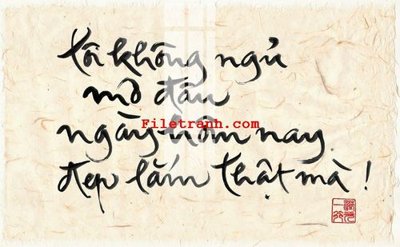 tôi không ngủ
mơ đâu
Filetranh.com
ngày hôm nay
đẹp lắm thật mà !